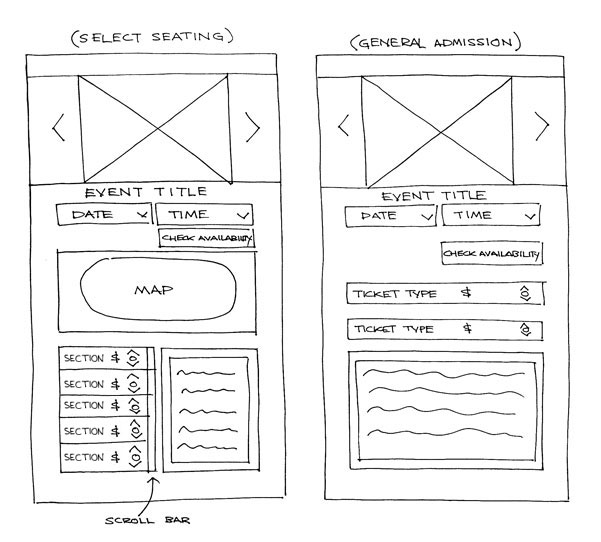 (SELECT SEATING)
EVENT TITLE
DATE
TIME
CHECK AVAILABILITY
MAP
SECTION $ 0
SECTION $ 0
SECTION $ 0
SECTION $ 0
SECTION $ 0
SCROLL BAR
(GENERAL ADMISSION)
EVENT TITLE
DATE
TIME
CHECK AVAILABILITY
TICKET TYPE $ 0
TICKET TYPE $ 0